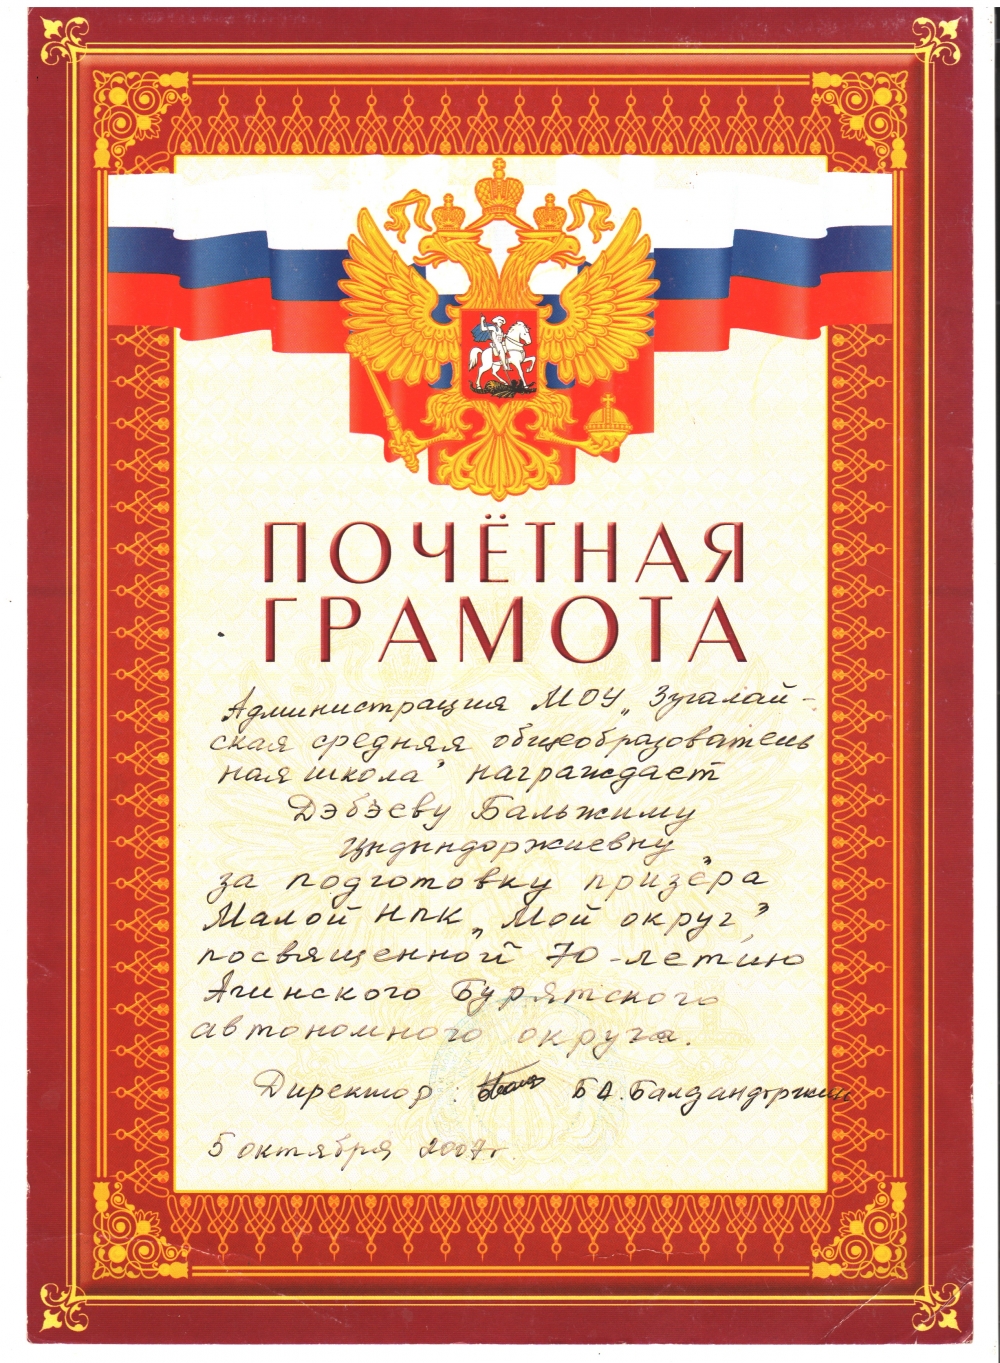 ПОЧЁТНАЯ
ГРАМОТА
Администрация МОУ „Зугалай-
ская средняя общеобразователь
ная школа" награждает
Дэбэеву Бальжиму
Цындондоржиевну
за подготовку призёра
Малой НПК „Мой округ",
посвященной 70-летию
Агинского Бурятского
автономного округа.
Директор: Б А.
5 октября 2007 г.